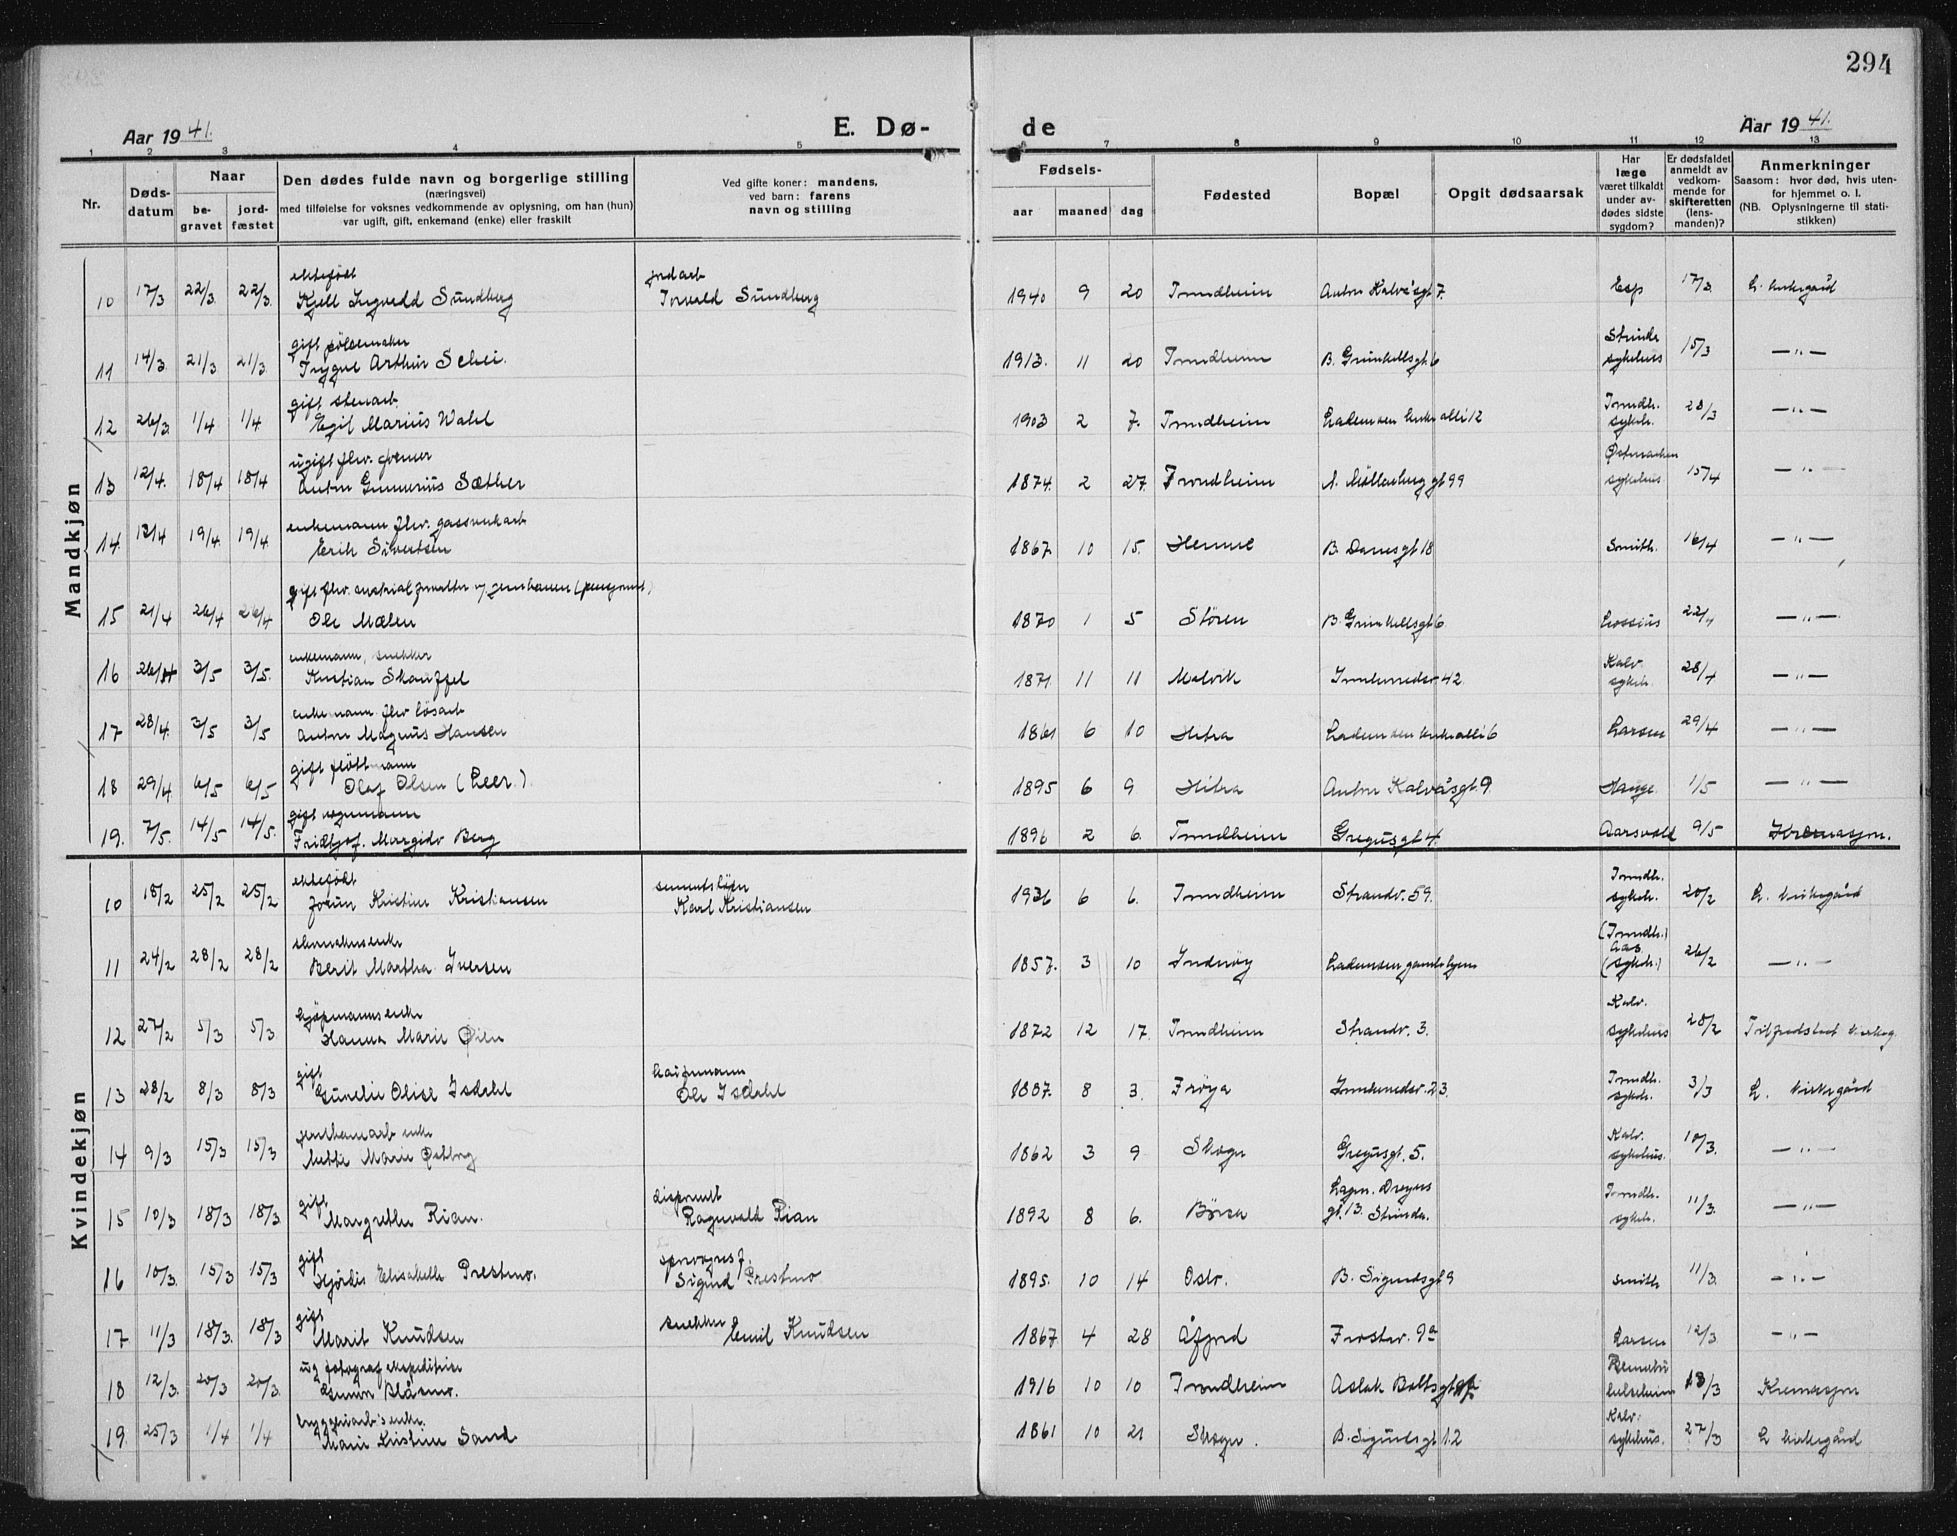 294
Aar 1941.
E. Dø-
de
Aar 1941.
1 2 3 4 5 6 7 8 9 10 11 12 13
Nr.
Døds-
datum
Naar
be-
gravet
jord-
fæstet
Den dødes fulde navn og borgerlige stilling
(næringsvei)
med tilføielse for voksnes vedkommende av oplysning, om han (hun)
var ugift, gift, enkemand (enke) eller fraskilt
Ved gifte koner: mandens,
ved barn: farens
navn og stilling
Fødsels-
aar maaned dag
Fødested
Bopæl
Opgit dødsaarsak
Har
læge
været tilkaldt
under av-
dødes sidste
sygdom?
Er dødsfaldet
anmeldt av
vedkom-
mende for
skifteretten
(lens-
manden)?
Anmerkninger
Saasom: hvor død, hvis uten-
for hjemmet o. l.
(NB. Oplysningerne til stati-
stikken)
Mandkjøn
ektefødt jordarb
10 17/3 22/3 22/3 Kjell Ingvald Sundberg Torvald Sundberg 1940 9 20 Trondheim Anton Kalvåsgt 7. Esp 17/3 L. kirkegård
gift pölsemaker Strinda
11 14/3 21/3 21/3 Trygve Arthur Schei. 1913. 11 20 Trondheim B. Grinkellsgt. 6 sykehus 15/3 — " —
gift stenarb. Trondh.
12 26/3. 1/4 1/4 Egil Marius Wahl 1903 2 7. Trondheim Ladem­oen kirkealli 12 sykeh. 28/3 — " —
ugift flv. former Østmarken
13 12/4. 18/4 18/4 Anton Gunnerius Sæther 1874. 2 27. Trondheim N. Møllenberggt 99 sykehus 15/4 — " —
enkemann flv. gassverkarb
14. 13/4 19/4 19/4. Erik Sivertsen 1867. 10 15. Hemne B. Danesgt 18 Smith. 16/4 — " —
gift flv.
15 21/4 26/4 26/4 Ole Mælen 1870 1 5 Støren B. Grinkellsgt. 6 Lossius 22/4 — " —
enkemann, snekker Kalv.
16 26/4 3/5 3/5. Kristian Skauffel 1871. 11 11 Malvik Innherredsv. 42. sykeh. 28/4 — " —
enkemann flv løsarb
17 28/4. 3/5 3/5 Anton Magnus Hansen 1861 6 10 Hitra Lademoen kirkealli 6 Larsen 29/4 — " —
gift fløttmann
18 29/4 6/5 6/5 Olaf Olsen (Leer.) 1895 6 9 Hitra Anton Kalvåsgt. 9 Hauge 1/5 — " —
gift vognmann
19. 7/5. 14/5 14/5. Fridtjof Margido Berg 1896 2 6. Trondheim Gregusgt 4. Aarsvold 9/5 Kremasjon.
Kvindekjøn
ektefødt Trondh.
10 18/2 25/2 25/2 Jorun Kristine Kristiansen Karl Kristiansen 1936 6 6. Trondheim Strandv. 59. sykeh. 20/2 L. kirkegård
skomakerenke (Trondh.) Aas
11 24/2 28/2 28/2 Berit Martha Iversen 1857. 3 10 Inderøy Lademoen gamlehjem (sykeh.) 26/2 — " —
kjøpmannsenke Kalv.
12 27/2 5/3 5/3 Hanna Marie Øien 1872 12 17. Trondheim Strandv. 3. sykehus 28/2 Tilfredshet kirkeg.
gift Trondh.
13 28/2 8/3 8/3 Gurelie Olise Isdahl Ole Isdahl 1887. 8 3. Frøya Innherredsv. 23. sykeh. 3/3 L. kirkegård
jernbanearb enke Kalv.
14 9/3 15/3 15/3. Mette Marie Østborg 1862 3 9 Skogn Gregusgt. 5. sykehus. 10/3. — " —
gift disponent Lagm. Dreyers Trondh.
15 10/3 18/3 18/3. Margrethe Rian. Ragnvald Rian 1892 8 6. Børsa gt. 13. Strinda. sykeh. 11/3. — " —
gift sporvognsf.
16 10/3. 15/3 15/3 Hjørdis Elisabeth Prestmo. Sigurd Prestmo 1895. 10 14 Oslo. B. Sigurdsgt 9 Smith 11/3. — " —
gift snekker
17 11/3 18/3. 18/3 Marit Knudsen Emil Knudsen 1867 4 28 Åfjord Frostav. 9a Larsen 12/3. — " —
ug. fotograf ekspeditrise
18 12/3. 20/3 20/3. Gunvor Blåsmo. 1916 10 10 Trondheim Aslak Boltsgt 13/3 Kremasjon
bryggeriarb's enke. Kalv.
19. 25/3 1/4 1/4 Marie Kristine Sand 1861 10 21 Skogn. B. Sigurdsgt. 12 sykehus. 27/3 L kirkegård